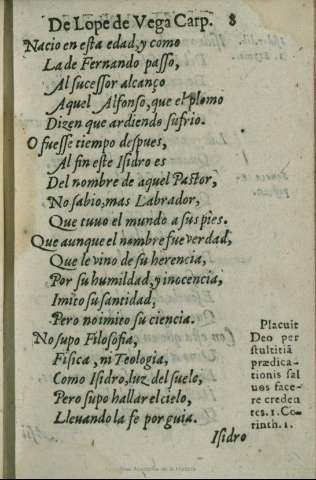 De Lope de Vega Carp. 8
Nacio en esta edad, y como
La de Fernando passo,
Al sucessor alcanço
Aquel Alfonso, que el plomo
Dizen que ardiendo sufrio.
O fuesse tiempo despues,
Al fin este Isidro es
Del nombre de aquel Pastor,
No sabio, mas Labrador,
Que tuuo el mundo a sus pies.
Que aunque el nombre fue verdad,
Que le vino de su herencia,
Por su humildad, y inocencia,
Imito su santidad,
Pero no imito su ciencia.
No supo Filosofia,
Fisica, ni Teologia,
Como Isidro, luz del suelo,
Pero supo hallar el cielo,
Lleuando la fe por guia.
Placuit
Deo per
stultitiā
prædica-
tionis sal
uos face-
re creden
tes. 1. Co-
rinth. 1.
Isidro